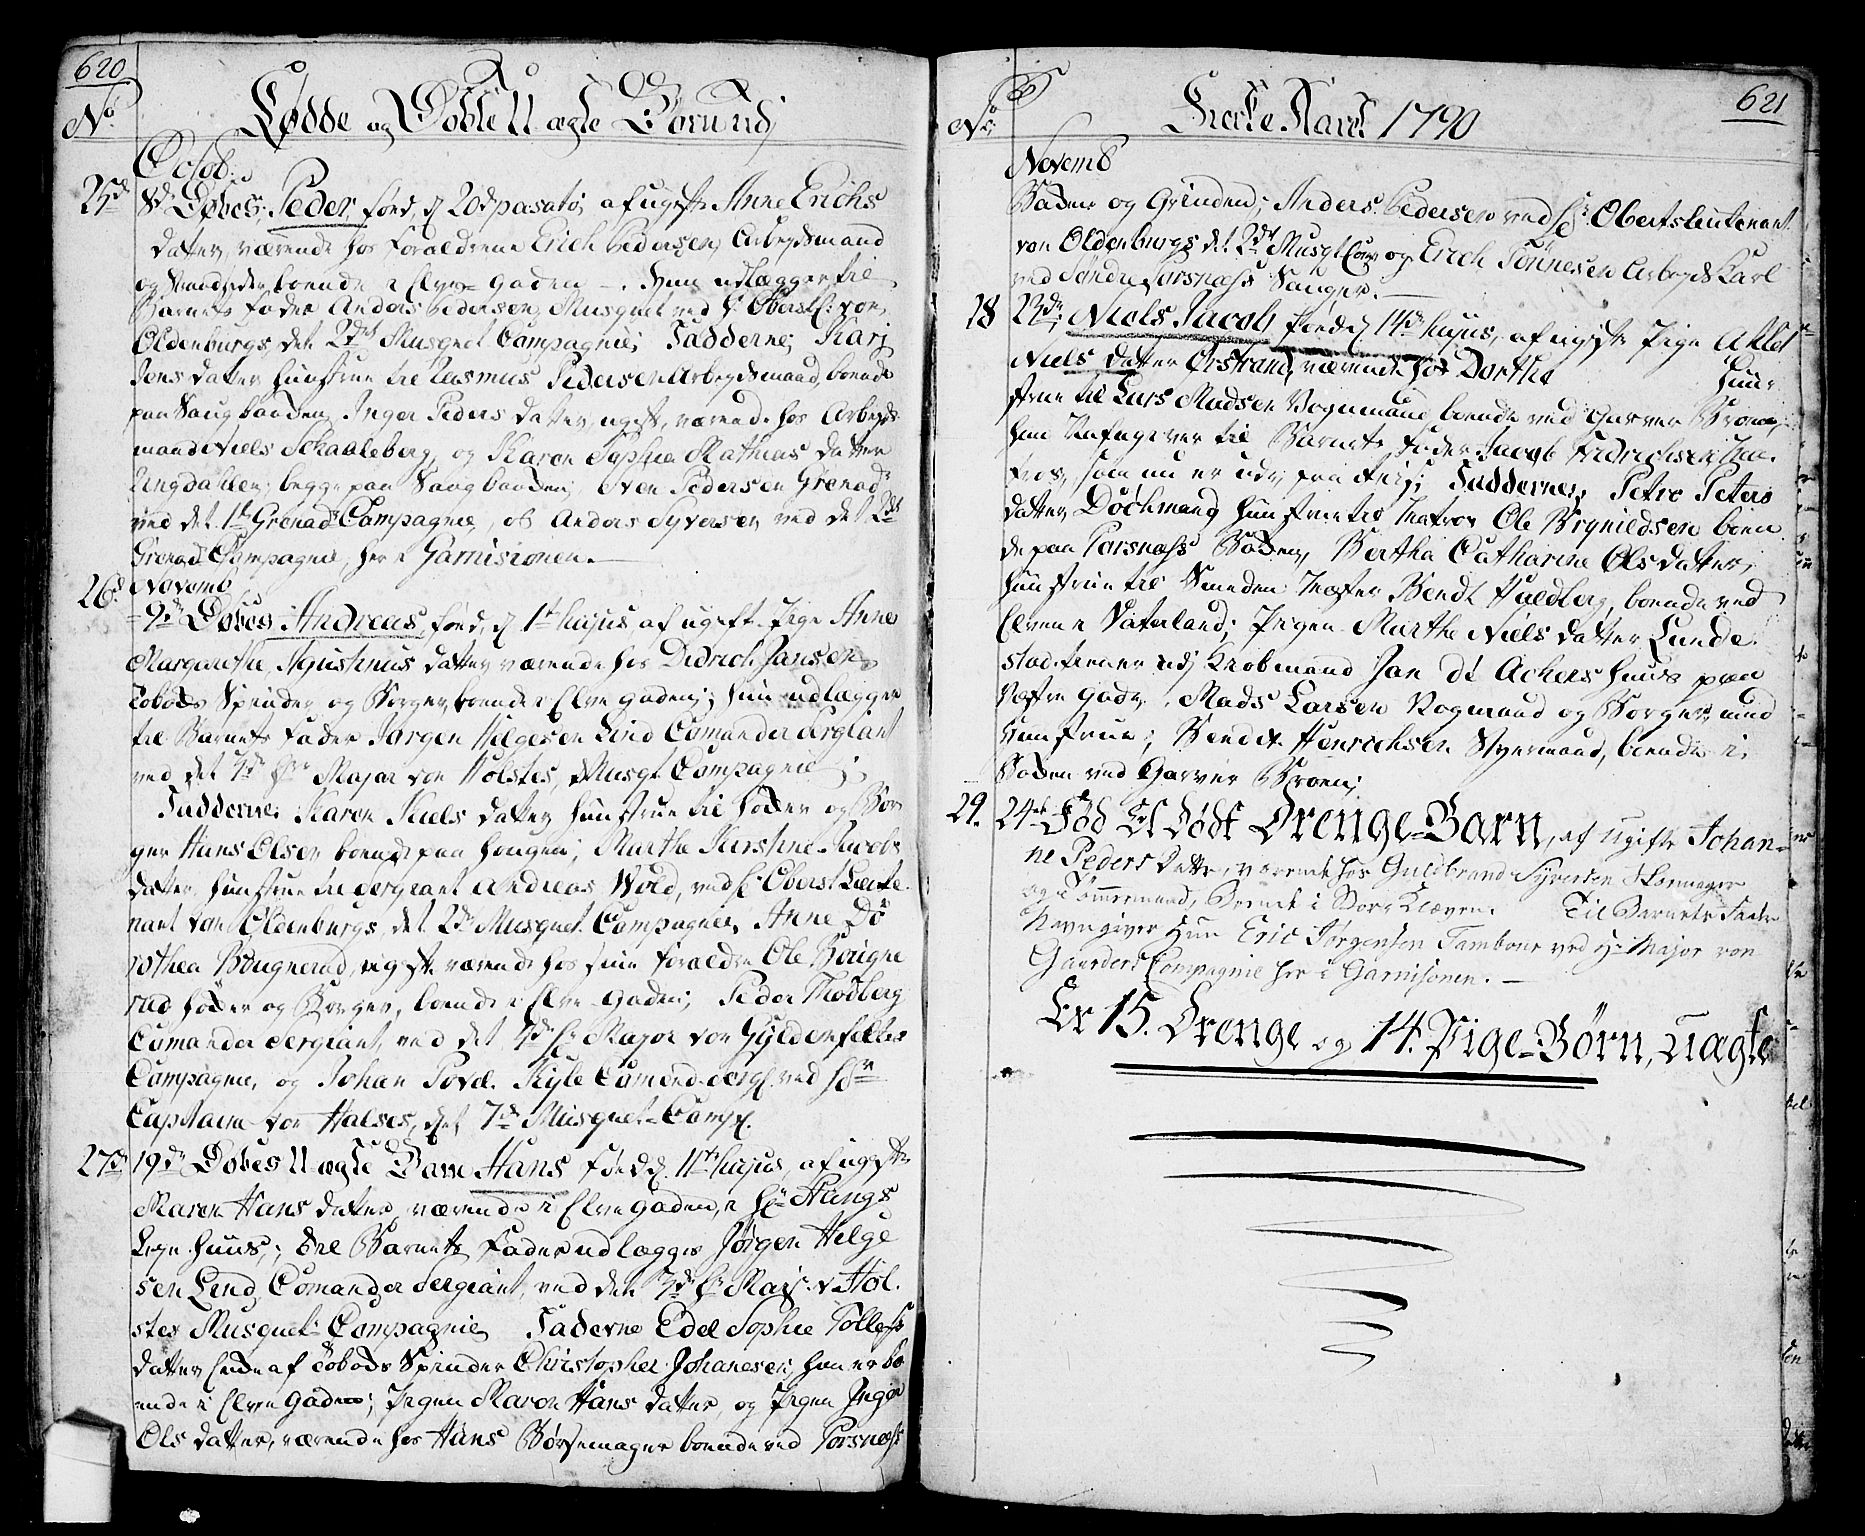 620
No
Fødde og Døbte Uægte Børn udj
Octob:
25de 8de Døbes, Peder, föed, d 20d pasato; af ugifte Anne Erichs
datter, værende hos foraldrene Erich Pedersen, Arbejdsmand
boende i Elve Gaden. Hun udlægger til
Barnets fader Anders Pedersen, Musquet ved Oberstl: von
Oldenburgs, det 2det Musquet Campagnie; Fadderne, Karj
Jens datter hustrue til Rasmus Pedersen Arbejdsmand, boende
paa Saug banden, Inger Peders datter ugift, værende hos Arbejds
mand Niels Schableberg, og Karen Sophia Mathias datter
begge paa Saugbanden, Sven Pedersen Grenad:
ved det 1te Grenad: Campagnie, ob Anders Syversen ved det 2det
Grenad: Campagnie, her i Garnisionen.
26de Novemb
9de Døbes Andreas, föed, d 1te hujus, af ugift Pige Anne
Margarethe Agustinus datter værende hos Didrich Jansen
Tobaks Spinder og Borger, boende i Elve gaden; hun udlægger
til Barnets fader Jørgen Helgesen Lind Comander Sergiant
ved det 3de Hr Major von Holstes, Musqt Campagnie;
Fadderne: Karen Niels datter hustrue til Høcker og Bor
ger Hans Olsen boende paa Hougen; Marthe Kirstine Jacobs
datter, hustrue til Sergiant Andreas Wold, ved Hr Oberst Lieute
nant von Oldenburgs, det 2de Musquet Campagnie, Anne Do
rothea Bougnerud, ugifte værende hos sine foraldre Ole Bougne
rud Höcker og Borger, boende i Elve Gaden; Peder Modberg
Comander Sergiant, ved det 4de Hr Major von Gyldenfeltes
Campagnie, og Johan Povel Kyle Comend. Sergt ved Hrr
Captaine von Halses, det 7de Musquet-Comp.
27de 19de Døbes Uægte Barn Hans föed d. 11te hujus, af ugifte
Maren Hans datter, værende i Elve Gaden, i Hr Hungs
Leye Huus; Til Barnets Fader udlægges Jørgen Helge
sen Lind Comander Sergiant, ved det 3de Hr Maj: v. Hol
stes Musquet: Campagnie Faderne Edel Sophie Tolless
datter Enke af Tobaks Spinder Christopher Johanesen, hun er bo
ende i Elve Gaden; Pigen Maren Hans datter, og Pigen Inger
Ols datter, værende hos Hans Børsemager boende ved Forsnæss
621
No
Kierke Aaret 1790
Novemb
Boden og Grinden; Anders Pedersen ved Hr. Oberstleutenant
von Oldenburgs det 2det Musqt Comp og Erich Tønnesen Arbejds Karl
ved Søndre Forsnæss Sauger.
28 23de, Niels Jacob föed d. 14de hujus, af ugifte Pige
Niels datter Ørstrand, værende hos Dorthe Huu-
strue til Lars Madsen Vognmand boende ved Garver Broen,
hun Unfugiver til Barnets fader Jacob Fredrichsen
som nu er ude paa Fadderne, Petro Peters
datter Dochmand hustrue til Ole Brynildsen boen
de paa Forsnæss Boden, Bertha Catharine Olsdatter,
hustrue til Smeden Mester Bendt Huldberg, boende ved
Elven i Vaterland; Pigen Marthe Niels datter Lunde
stad tiener udj Krobmand Jan di Ackers huus paa
Vestre gade. Mads Larsen Vogmand og Borger, med
hustrue; Bendix Henrichsen Styermand, boende i
Boden ved Garver Broen;
29. 24de Fød Et dødt Drenge-Barn, af ugifte Johan-
ne Peders datter, værende hos Guldbrand Syversen Skomager
og Tömmermand, boende i Till Barnets Fader
Navngiver Hun Eric Jørgensen Tambour ved Hr Major von
Gaarders Compagnie her i Garnisonen.
Er 15. Drenge og 14. Pige-Børn, uægte